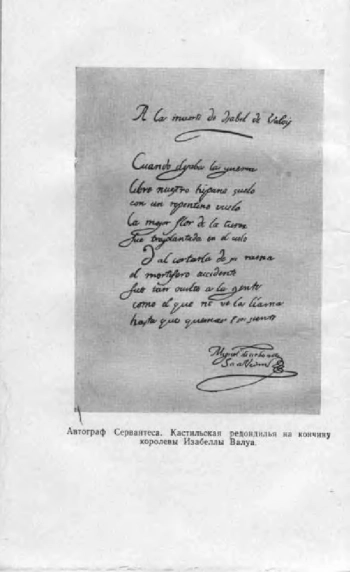 A la muerte de Isabel de Valoys
Cuando dexaba la guerra
libre nuestro hispano suelo
con un repentino vuelo
la mejor flor de la tierra
fue trasplantada en el cielo
Y al cortarla de su rama
el mortifero accidente
fue tan oculta a la gente
como el que no ve la llama
hasta que quemar se siente
Miguel de Cerbantes
Saavedra
Автограф Сервантеса. Кастильская редондилья на кончину
королевы Изабеллы Валуа.